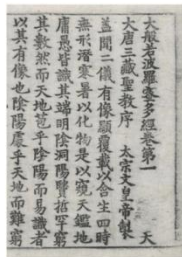 大般若波羅蜜多經卷第一 天
大唐三藏聖教序 太宗文皇帝製
蓋聞二儀有像顯覆載以含生四時
無形潛寒暑以化物是以窺天鑑地
庸愚皆識其端明陰洞陽賢哲罕窮
其數然而天地苞乎陰陽而易識者
以其有像也陰陽處乎天地而難窮